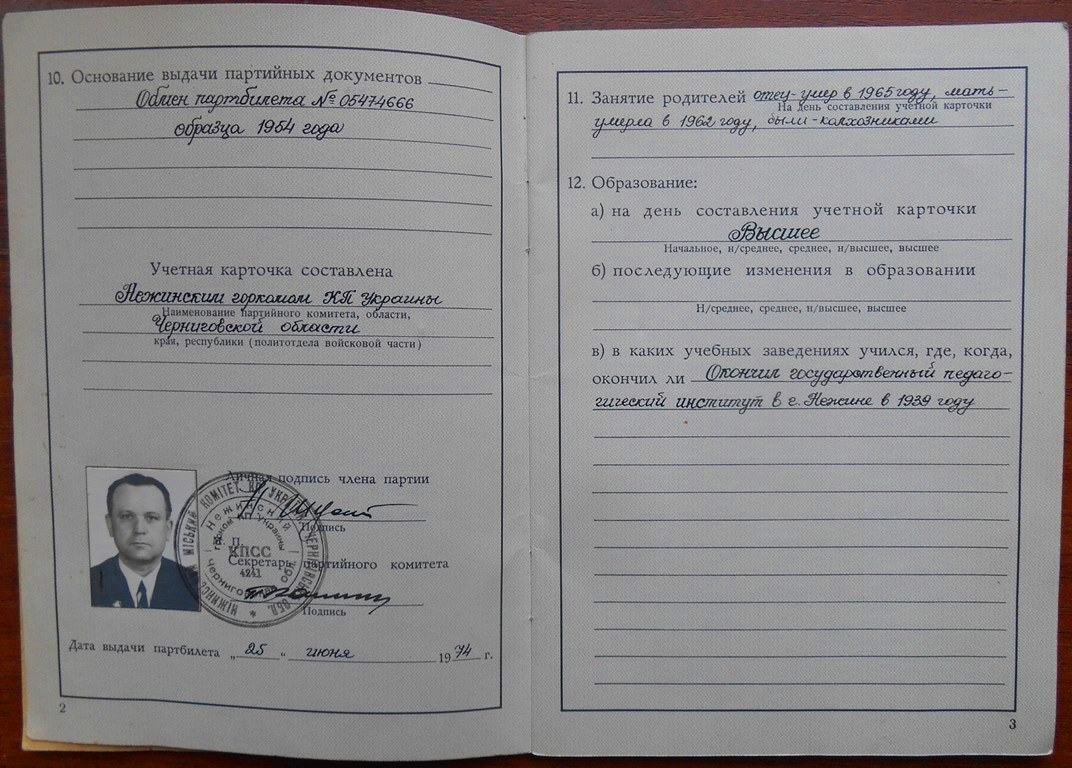 10. Основание выдачи партийных документов
Обмен партбилета № 05474666
образца 1954 года
Учетная карточка составлена
Нежинским горкомом КП Украины
Наименование партийного комитета, области,
Черниговской области
края, республики (политотдела войсковой части)
Личная подпись члена партии
Подпись
М. П.
КПСС
4241
Нежинский
горком КП Украины
Секретарь партийного комитета
Подпись
Дата выдачи партбилета „25“ июня 1974 г.
2
11. Занятие родителей отец-умер в 1965 году, мать-
На день составления учетной карточки
умерла в 1962 году, были-колхозниками
12. Образование:
а) на день составления учетной карточки
Высшее
Начальное, н/среднее, среднее, н/высшее, высшее
б) последующие изменения в образовании
Н/среднее, среднее, н/высшее, высшее
в) в каких учебных заведениях учился, где, когда,
окончил ли Окончил государственный педаго-
гический институт в г. Нежине в 1939 году
3